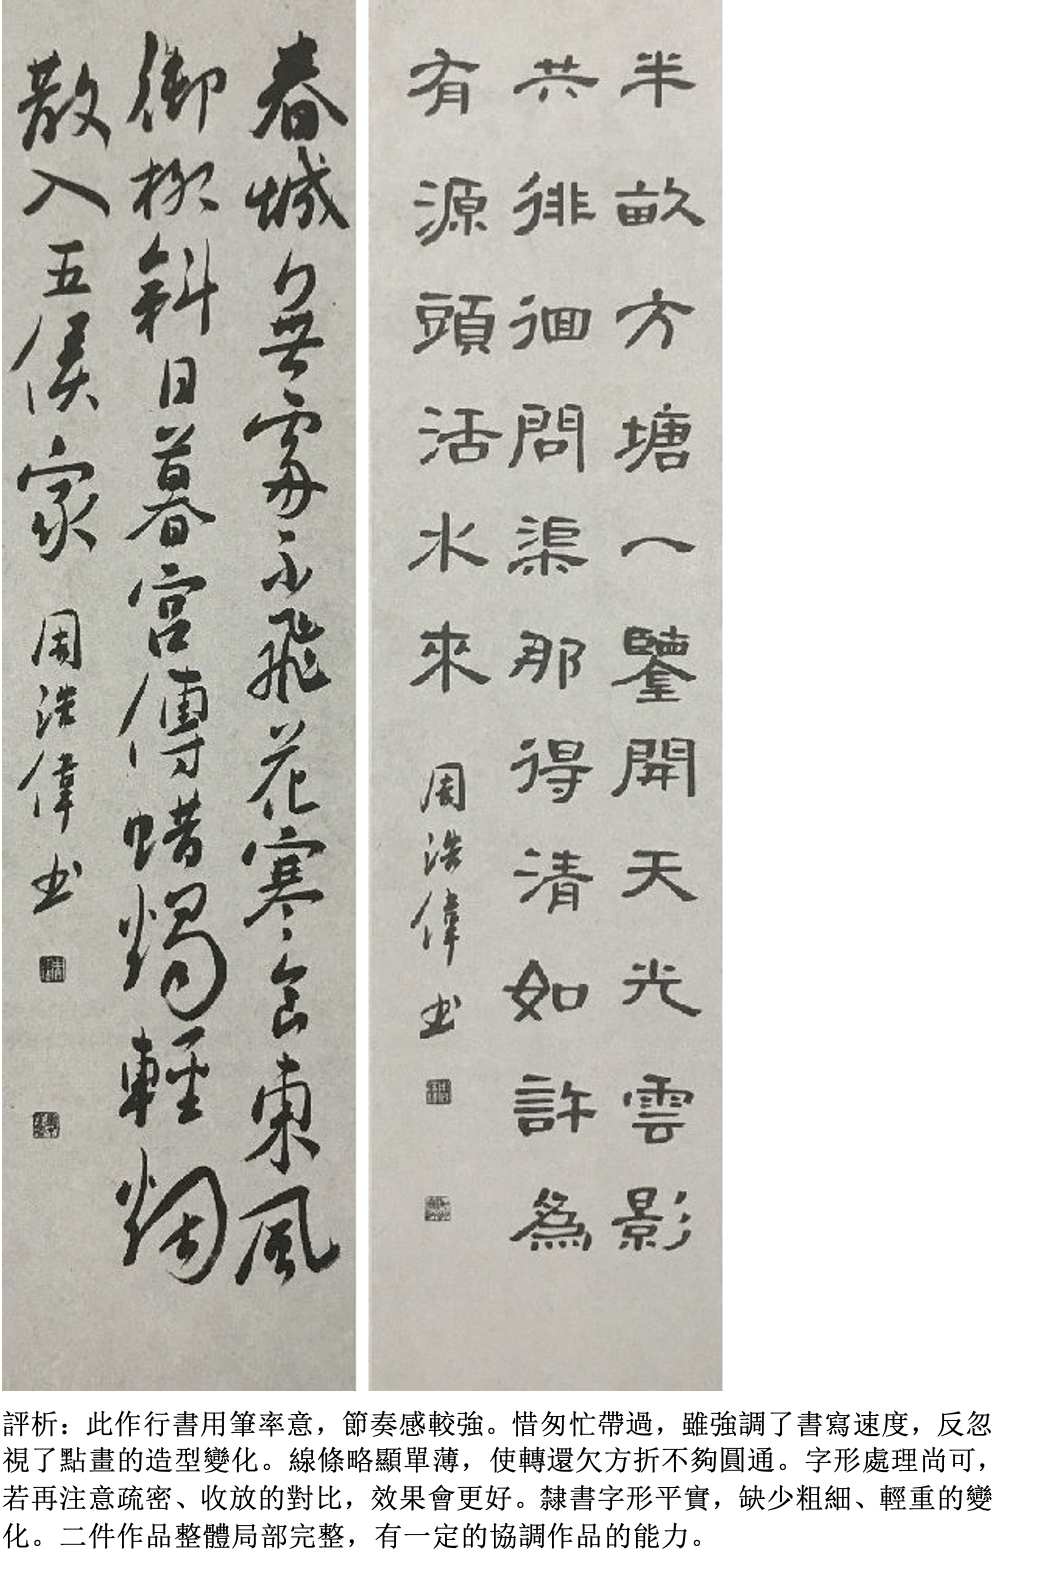 半畝方塘一鑒開天光雲影
共徘徊問渠那得清如許為
有源頭活水來
周浩偉书
春城無處不飛花寒食東風
御柳斜日暮宮傳蜡燭輕烟
散入五侯家
周浩偉书
評析：此作行書用筆率意，節奏感較強。惜匆忙帶過，雖強調了書寫速度，反忽
視了點畫的造型變化。線條略顯單薄，使轉還欠方折不夠圓通。字形處理尚可，
若再注意疏密、收放的對比，效果會更好。隸書字形平實，缺少粗細、輕重的變
化。二件作品整體局部完整，有一定的協調作品的能力。